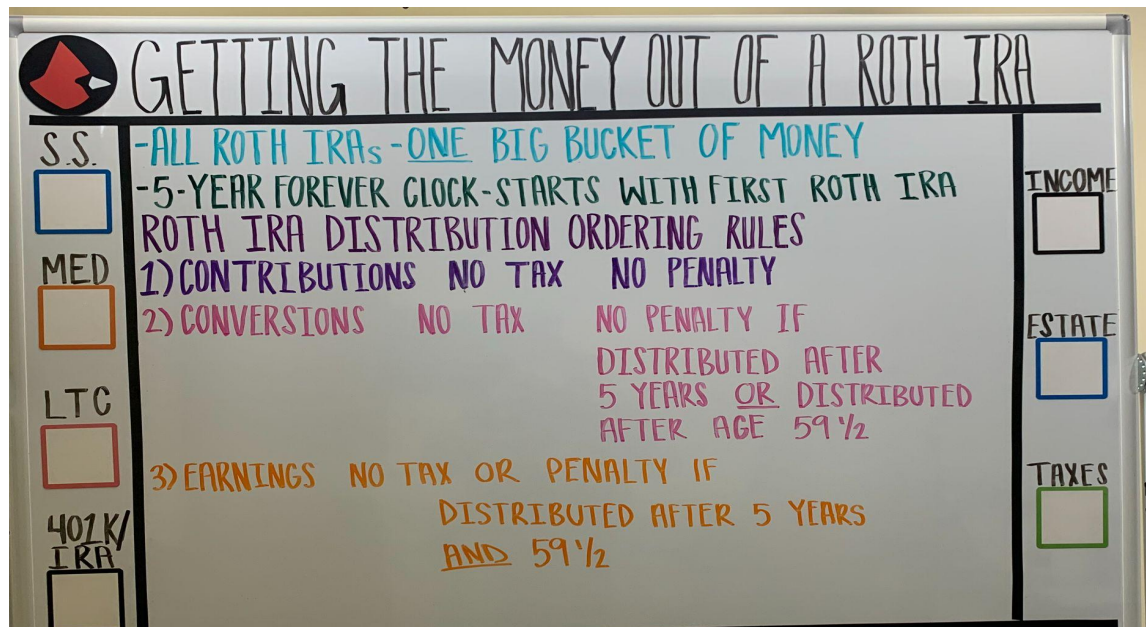 GETTING THE MONEY OUT OF A ROTH IRA
S.S.
MED
LTC
401K/
IRA
-ALL ROTH IRAs -ONE BIG BUCKET OF MONEY
-5-YEAR FOREVER CLOCK-STARTS WITH FIRST ROTH IRA
ROTH IRA DISTRIBUTION ORDERING RULES
1) CONTRIBUTIONS NO TAX NO PENALTY
2) CONVERSIONS NO TAX NO PENALTY IF
DISTRIBUTED AFTER
5 YEARS OR DISTRIBUTED
AFTER AGE 59 1/2
3) EARNINGS NO TAX OR PENALTY IF
DISTRIBUTED AFTER 5 YEARS
AND 59 1/2
INCOME
ESTATE
TAXES